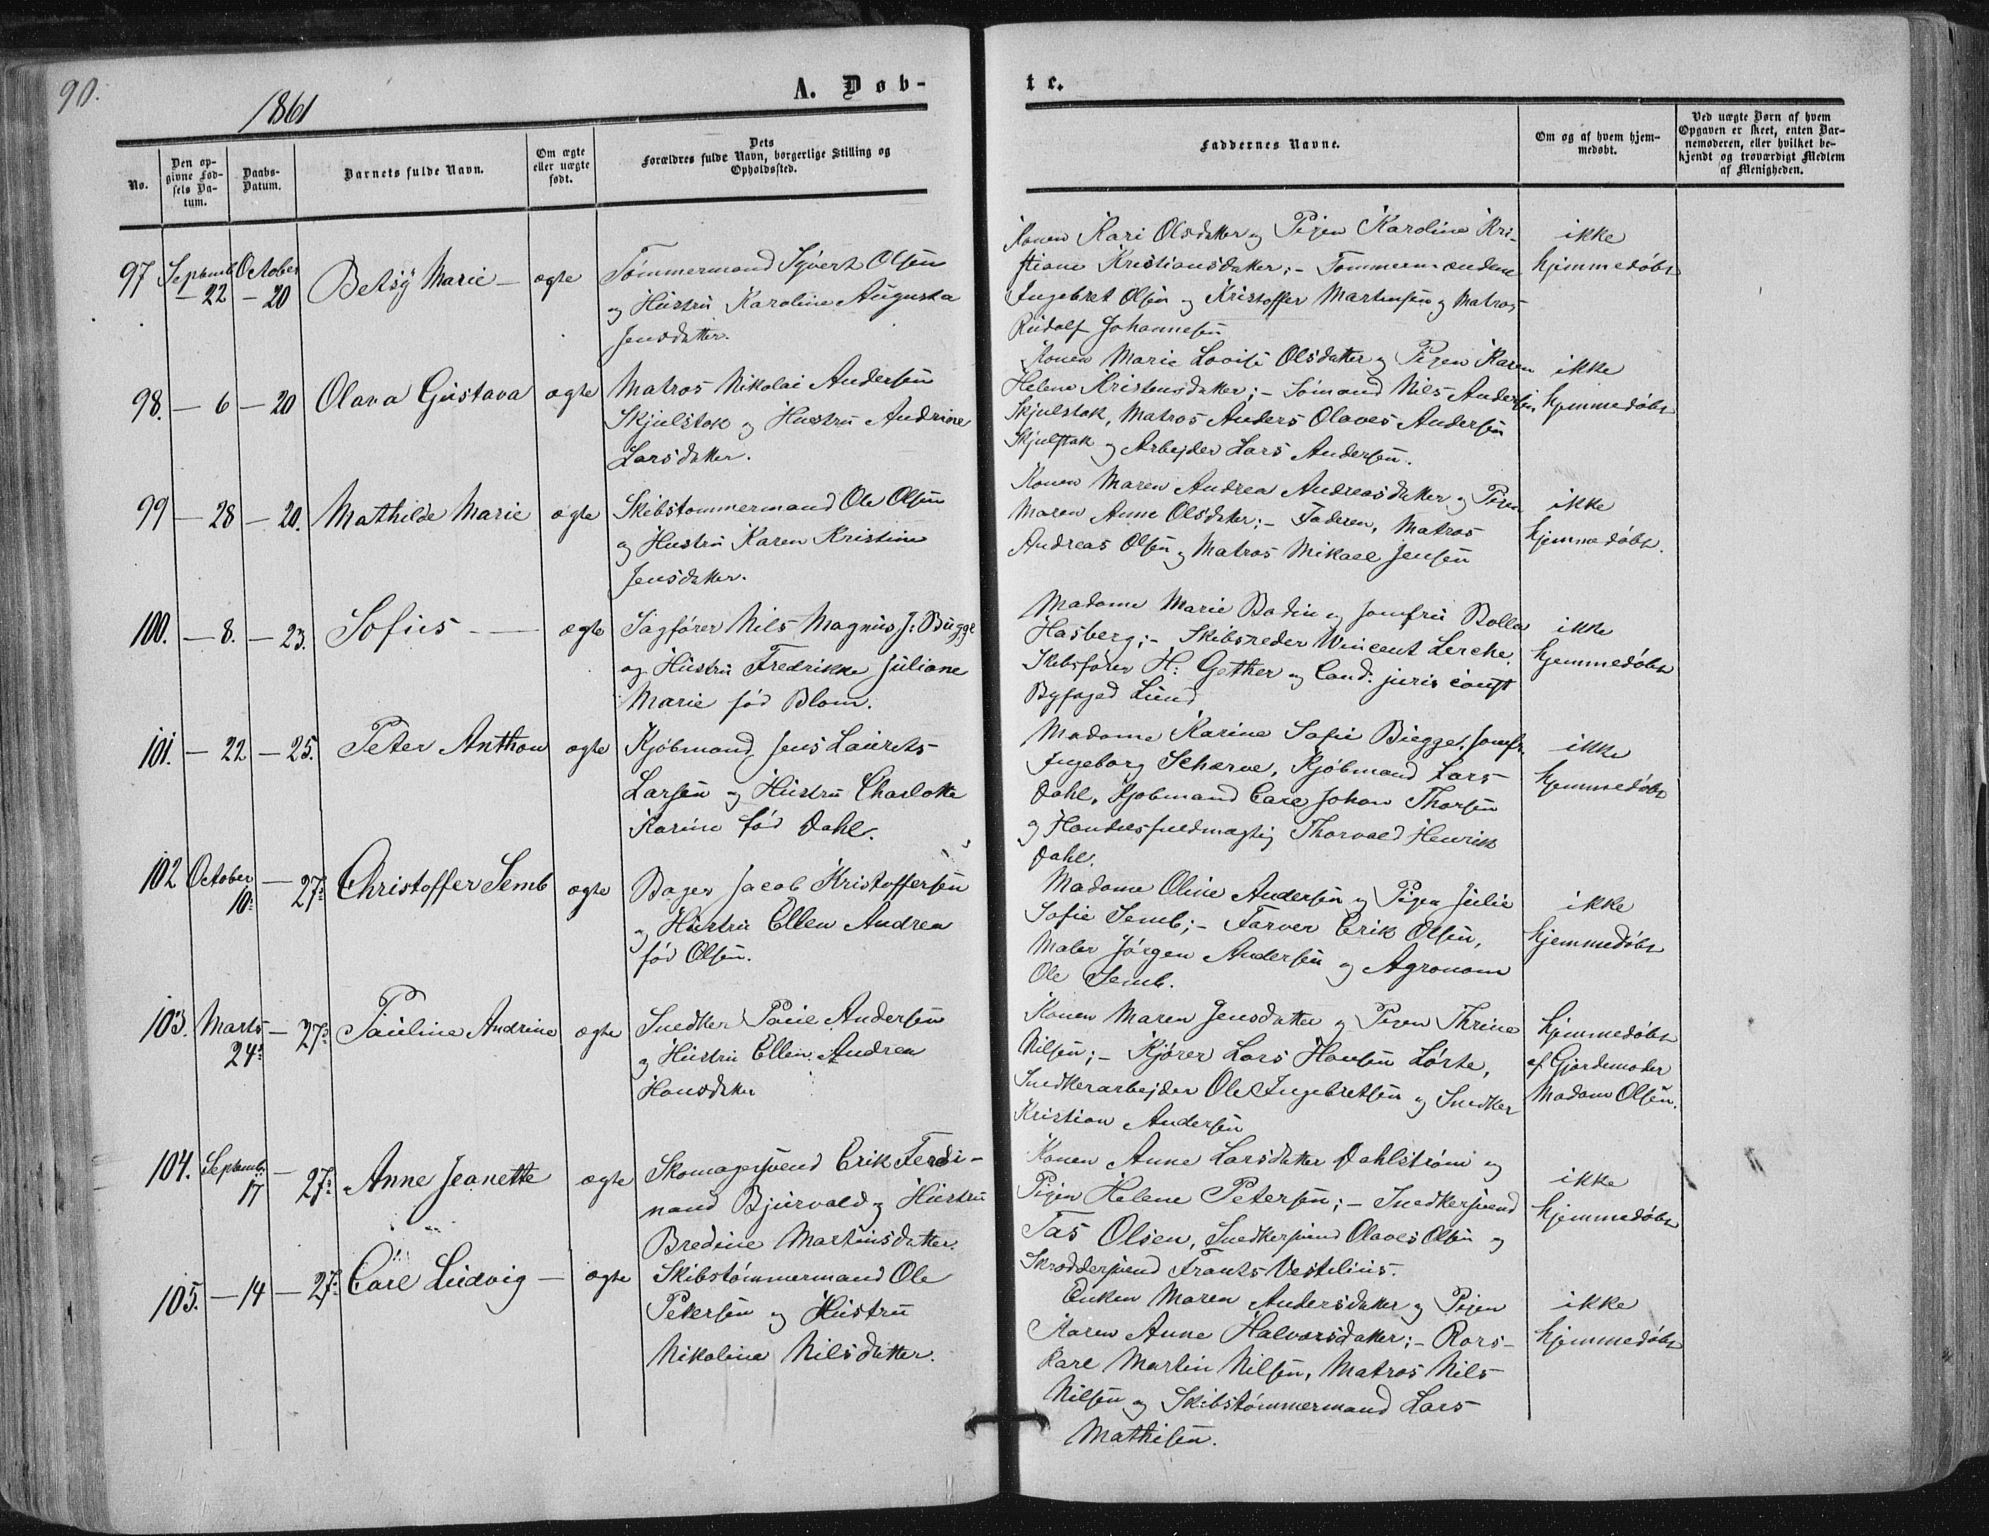 90.
1861
A. Døb-
te.
No.
Den op-
givne Fød-
sels Da-
tum.
Daabs-
Datum.
Barnets fulde Navn.
Om ægte
eller uægte
født.
Dets
Forældres fulde Navn, borgerlige Stilling og
Opholdssted.
Faddernes Navne.
Om og af hvem hjem-
medøbt.
Ved uægte Børn af hvem
Opgaven er skeet, enten Bar-
nemoderen, eller hvilket be-
kjendt og troværdigt Medlem
af Menigheden.
97 Septemb. — 22 October — 20 Betsy Marie — ægte
Tømmermand Syvert Olsen
og Hustru Karoline Augusta
Jensdatter.
Konen Kari Olsdatter og Pigen Karoline Kri-
stiane Kristiansdatter; – Tømmermændene
Ingebret Olsen og Kristoffer Martinsen og Matros
Rudolf Johannesen
ikke
hjemmedøbt
98. — 6 — 20 Olava Gustava ægte
Matros Nikolai Andersen
Skjulstok og Hustru Andrine
Larsdatter.
Konen Marie Lovise Olsdatter og Pigen Karen
Helene Kristensdatter; – Sømand Nils Andersen
Skjulstok, Matros Anders Olaves Andersen
Skjulstok og Arbejder Lars Andersen.
ikke
hjemmedøbt
99 — 28 — 20. Mathilde Marie ægte
Skibstømmermand Ole Olsen
og Hustru Karen Kristine
Jensdatter.
Konen Maren Andrea Andreasdatter og Pigen
Maren Anne Olsdatter; – Faderen, Matros
Andreas Olsen og Matros Mikael Jensen
ikke
hjemmedøbt.
100. — 8. — 23. Sofus — — ægte
Sagfører Nils Magnus J: Bugge
og Hustru Fredrikke Juliane
Marie fød Blom.
Madame Marie Bodin og Jomfru Bolla
Hasberg; – Skibsreder Wincent Lerche,
Skibsfører H: Gether og Cand. juris const
Byfoged Lund
ikke
hjemmedøbt
101. — 22 — 25. Peter Anthon ægte
Kjøbmand Jens Laurets
Larsen og Hustru Charlotte
Karine fød Dahl.
Madame Karine Sofie Bugge, Jomfr.
Ingeborg Scharve, Kjøbmand Lars
Dahl, Kjøbmand Carl Johan Thorsen
og Handelsfuldmægtig Thorvald Henrik
Dahl.
ikke
hjemmedøbt
102 October 10: — 27: Christoffer Semb ægte
Bager Jacob Kristoffersen
og Hustru Ellen Andrea
fød Olsen.
Madame Oline Andersen og Pigen Julie
Sofie Semb; – Farver Erik Olsen,
Maler Jørgen Andersen og Agronom
Ole Semb.
ikke
hjemmedøbt
103. Marts 24: — 27: Pauline Andrine ægte
Snedker Paul Andersen
og Hustru Ellen Andrea
Hansdatter
Konen Maren Jensdatter og Pigen Thrine
Nilsen; – Kjører Lars Hansen Lørte,
Snedkerarbejder Ole Ingebretsen og Snedker
Kristian Andersen
hjemmedøbt
af Gjordemoder
Madam Olsen.
104. Septemb. 17 — 27: Anne Jeanette ægte
Skomagersvend Erik Ferdi-
nand Bjurvald og Hustru
Bredine Martinsdatter.
Konen Anne Larsdatter Dahlstrøm og
Pigen Helene Petersen; – Snedkersvend
Tas Olsen, Snedkersvend Olaves Olsen og
Skræddersvend Frants Vestelius.
ikke
hjemmedøbt
105. — 14 — 27: Carl Ludvig — ægte
Skibstømmermand Ole
Petersen og Hustru
Nikoline Nilsdatter.
Enken Maren Andersdatter og Pigen
Karen Anne Halvorsdatter; – Rors-
karl Martin Nilsen, Matros Nils
Nilsen og Skibstømmermand Lars
Mathisen.
ikke
hjemmedøbt